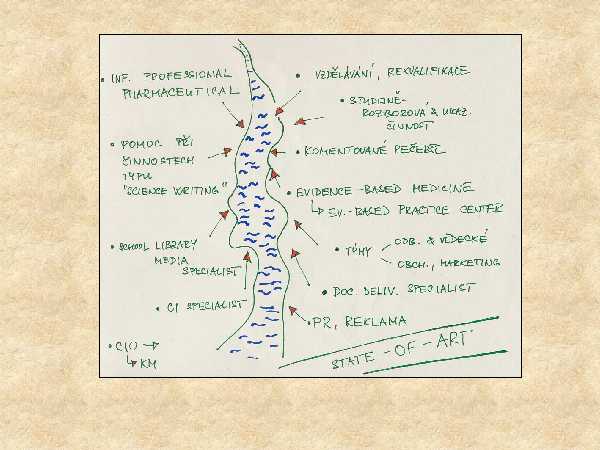 • INF. PROFESSIONAL
PHARMACEUTICAL
• POMOC PŘI
ČINNOSTECH
TYPU
"SCIENCE WRITING"
• SCHOOL LIBRARY
MEDIA
SPECIALIST
• CI SPECIALIST
• CIO →
↳ KM
• VZDĚLÁVÁNÍ, REKVALIFIKACE
• STUDIJNĚ-
ROZBOROVÁ & UKAZ.
ČINNOST
• KOMENTOVANÉ
• EVIDENCE-BASED MEDICINE
↳ EV.-BASED PRACTICE CENTER
• TÝMY
ODB. & VĚDECKÉ
OBCH., MARKETING
• DOC. DELIV. SPECIALIST
• PR, REKLAMA
STATE-OF-ART